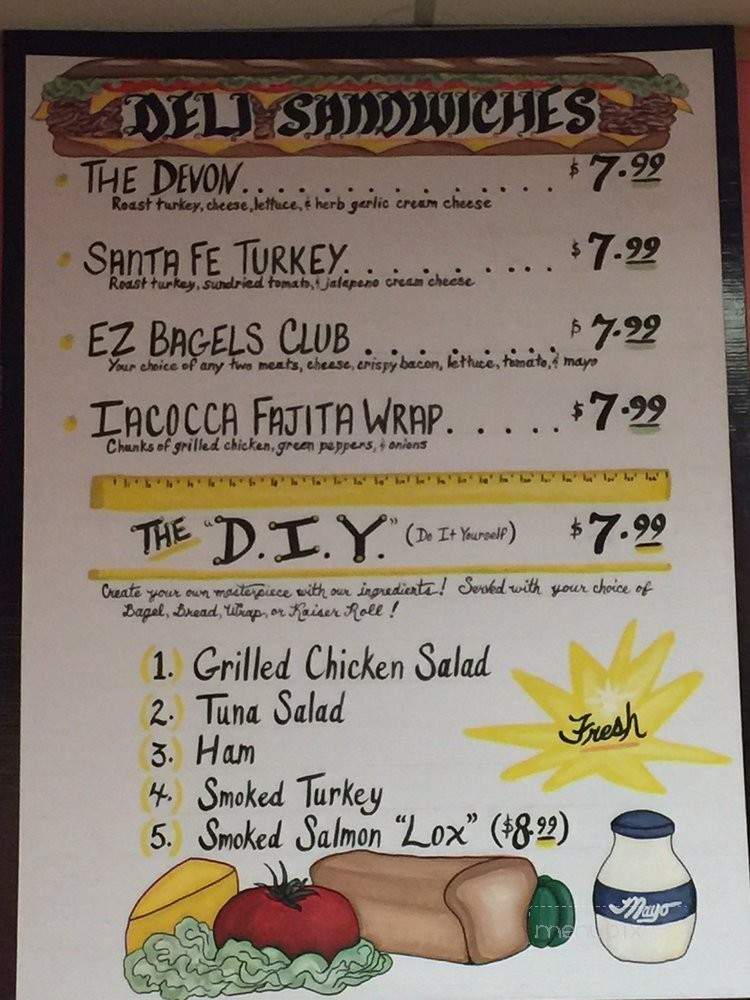 DELI SANDWICHES
THE DEVON. . . . . . . . . . . . . . . $7.99
Roast turkey, cheese, lettuce, & herb garlic cream cheese
SANTA FE TURKEY. . . . . . . . . . $7.99
Roast turkey, sundried tomato, & jalapeno cream cheese
EZ BAGELS CLUB . . . . . . . . . $7.99
Your choice of any two meats, cheese, crispy bacon, lettuce, tomato, & mayo
IACOCCA FAJITA WRAP. . . . . . $7.99
Chunks of grilled chicken, green peppers, & onions
THE "D.I.Y." (Do It Yourself) $7.99
Create your own masterpiece with our ingredients! Served with your choice of
Bagel, Bread, Wrap, or Kaiser Roll!
(1.) Grilled Chicken Salad
(2.) Tuna Salad
(3.) Ham
(4.) Smoked Turkey
(5.) Smoked Salmon "Lox" ($8.99)
Fresh
Mayo